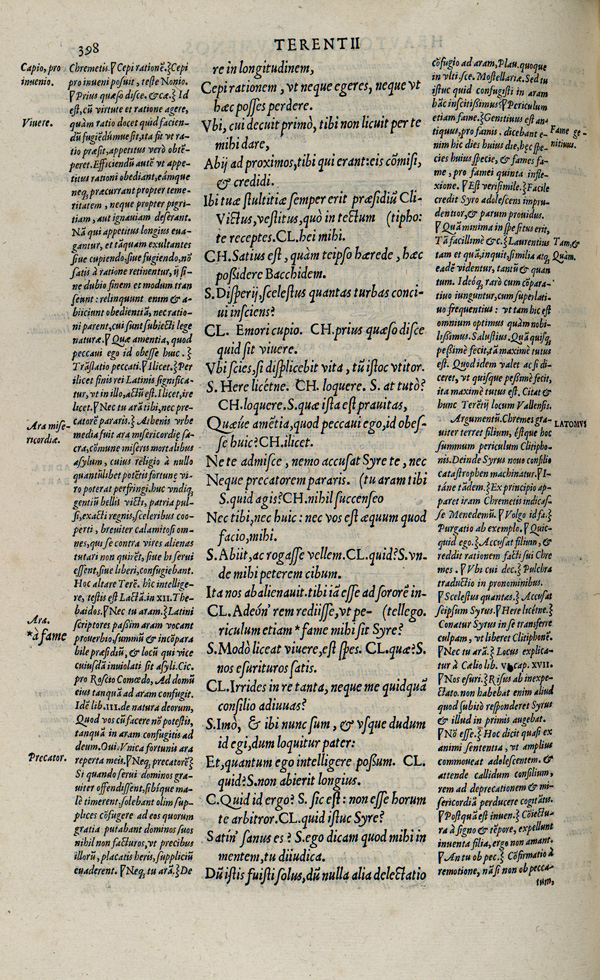 398
TERENTII
Capio, pro
inuenio.
Viuere.
Ara mise-
ricordiæ.
Ara.
*à fame
Precator.
Chremetis. ⁋Cepi rationē.⁆Cepi
pro inueni posuit, teste Nonio.
⁋Prius quæso disce. &ca.⁆ Id
est, cū virtute et ratione agere,
quàm ratio docet quid facien-
dū fugiēdúmue sit, ita sit vt ra-
tio præsit, appetitus verò obtē-
peret. Efficiendū autē vt appe-
titus rationi obediant, eámque
neq; præcurrant propter teme-
ritatem, neque propter pigri-
tiam, aut ignauiam deserant.
Nā qui appetitus longius eua-
gantur, et tāquam exultantes
siue cupiendo, siue fugiendo, nō
satis à ratione retinentur, ij si-
ne dubio finem et modum tran
seunt: relinquunt enim & a-
biiciunt obedientiā, nec ratio-
ni parent, cui sunt subiecti lege
naturæ. ⁋Quæ amentia, quod
peccaui ego id obesse huic.⁆
Trāslatio peccati. ⁋Ilicet.⁆Per
ilicet finis rei Latinis significa-
tur, vt in illo, actū est. Ilicet, ire
licet. ⁋Nec tu arā tibi, nec pre-
catorē pararis.⁆ Athenis vrbe
media fuit ara misericordiæ sa-
cra, cōmune miseris mortalibus
asylum, cuius religio à nullo
quantūlibet potētis fortunæ vi-
ro poterat perfringi. huc vndiq;
gentiū bellis victi, patria pul-
si, exacti regnis, sceleribus coo-
perti, breuiter calamitosi om-
nes, qui se contra vires alienas
tutari non quirēt, siue hi serui
essent, siue liberi, confugiebant.
Hoc altare Terē. hîc intellige-
re, testis est Lactā. in XII. The-
baidos. ⁋Nec tu aram.⁆Latini
scriptores passim aram vocant
prouerbio, summū & incōpara
bile præsidiū, & locū qui vice
cuiusdā inuiolati sit asyli. Cic.
pro Roscio Comœdo, Ad domū
eius tanquā ad aram confugit.
Idē lib. III. de natura deorum,
Quod vos cū facere nō potestis,
tanquā in aram confugitis ad
deum. Oui. Vnica fortunis ara
reperta meis. ⁋Neq; precatorē⁆
Si quando serui dominos gra-
uiter offendissent, sibique ma-
lè timerent, solebant olim sup-
plices cōfugere ad eos quorum
gratia putabant dominos suos
nihil non facturos, vt precibus
illorū, placatis heris, suppliciū
euaderent. ⁋Neq; tu arā.⁆ De
re in longitudinem,
Cepi rationem, vt neque egeres, neque vt
hæc posses perdere.
Vbi, cui decuit primò, tibi non licuit per te
mihi dare,
Abij ad proximos, tibi qui erant: eis cōmisi,
& credidi.
Ibi tuæ stultitiæ semper erit præsidiū Cli-
Victus, vestitus, quò in tectum (tipho:
te receptes. CL. hei mihi.
CH. Satius est, quàm teipso hærede, hæc
possidere Bacchidem.
S. Disperij, scelestus quantas turbas conci-
ui insciens?
CL. Emori cupio. CH. prius quæso disce
quid sit viuere.
Vbi scies, si displicebit vita, tū istoc vtitor.
S. Here licétne. CH. loquere. S. at tutò?
CH. loquere. S. quæ ista est prauitas,
Quæue amētia, quod peccaui ego, id obes-
se huic? CH. ilicet.
Ne te admisce, nemo accusat Syre te, nec
Neque precatorem pararis. (tu aram tibi
S. quid agis? CH. nihil succenseo
Nec tibi, nec huic: nec vos est æquum quod
facio, mihi.
S. Abiit, ac rogasse vellem. CL. quid? S. vn-
de mihi peterem cibum.
Ita nos abalienauit. tibi iā esse ad sororē in-
CL. Adeón' rem rediisse, vt pe- (tellego.
riculum etiam *fame mihi sit Syre?
S. Modò liceat viuere, est spes. CL. quæ? S.
nos esurituros satis.
CL. Irrides in re tanta, neque me quidquā
consilio adiuuas?
S. Imò, & ibi nunc sum, & vsque dudum
id egi, dum loquitur pater:
Et, quantum ego intelligere possum. CL.
quid? S. non abierit longius.
C. Quid id ergo? S. sic est: non esse horum
te arbitror. CL. quid istuc Syre?
Satín' sanus es? S. ego dicam quod mihi in
mentem, tu diiudica.
Dū istis fuisti solus, dū nulla alia delectatio
cōfugio ad aram, Plau. quoque
in vlti. sce. Mostellariæ. Sed tu
istuc quid confugisti in aram
hāc inscitissimus? ⁋Periculum
etiam fame.⁆Genitiuus est an-
tiquus, pro famis. dicebant e-
nim hic dies huius die, hęc spe-
cies huius specie, & fames fa-
me, pro famei quinta infle-
xione. ⁋Est verisimile.⁆Facile
credit Syro adolescens impru-
dentior, & parum prouidus.
⁋Quā minima in spe situs erit,
Tā facillimè &c.⁆ Laurentius
tam et quā, inquit, similia atq;
eadē videntur, tantū & quan
tum. Ideóq; rarò cum cōpara-
tiuo iunguntur, cum superlati-
uo frequentius: vt tam hic est
omnium optimus quàm nobi-
lissimus. Salustius. Quā quisq;
pessimè fecit, tā maximè tutus
est. Quod idem valet ac si di-
ceret, vt quisque pessimè fecit,
ita maximè tutus est. Citat &
hunc Terētij locum Vallensis.
Argumentū. Chremes gra-
uiter terret filium, éstque hoc
summum periculum Clitipho-
nis. Deinde Syrus nouo cōsilio
catastrophen machinatur. ⁋I-
tāne tādem.⁆ Ex principio ap-
paret iram Chremetis indicas-
se Menedemū. ⁋Volgo id fa.⁆
Purgatio ab exemplo. ⁋Quic-
quid ego.⁆ Accusat filium, &
reddit rationem facti sui Chre
mes. ⁋Vbi cui dec.⁆ Pulchra
traductio in pronominibus.
⁋Scelestus quantas.⁆ Accusat
seipsum Syrus. ⁋Here licétne.⁆
Conatur Syrus in se transferre
culpam, vt liberet Clitiphonē.
⁋Nec tu arā.⁆ Locus explica-
tur à Cælio lib. V. cap. XVII.
⁋Nos esuri.⁆ Risus ab inexpe-
ctato. non habebat enim aliud
quod subitò responderet Syrus
& illud in primis augebat.
⁋Nō esse.⁆ Hoc dicit quasi ex
animi sententia, vt amplius
commoueat adolescentem. &
attende callidum consilium,
rem ad deprecationem & mi-
sericordiā perducere cogitātis.
⁋Postquā est inuen.⁆ Cōiectu-
ra à signo & tēpore, expellunt
inuenta filia, ergo non amant.
⁋An tu ob pec.⁆ Cōfirmatio à
remotione, nā si non ob pecca-
tum,
Fame ge-
nitiuus.
Tam, &
Quàm.
LATOMVS